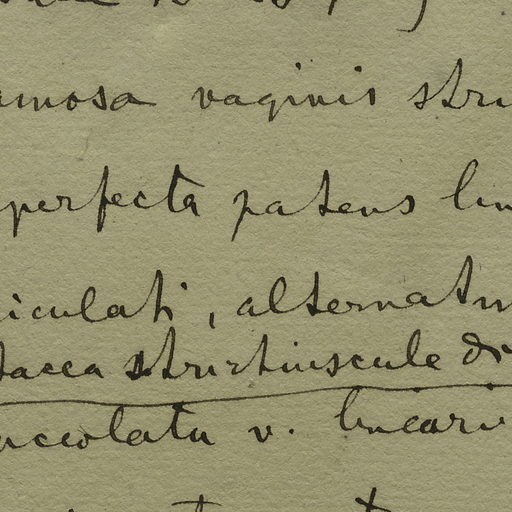 amosa vaginis stri
perfecta patens lin
iculati, alternatim
tacea strictiuscule di
nceolata v. linearis